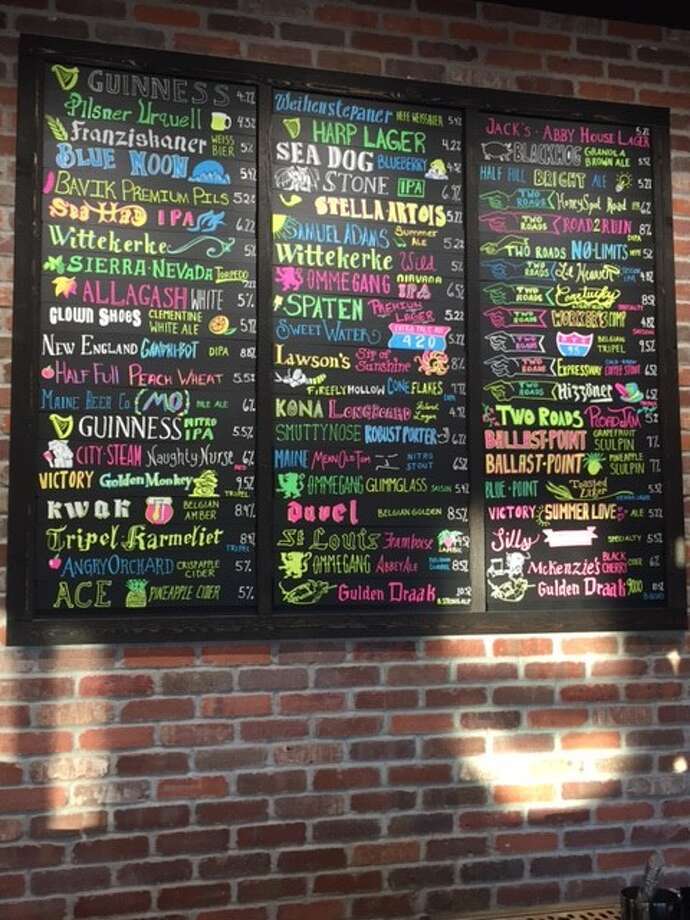 GUINNESS 4.2%
Pilsner Urquell 4.3%
Franziskaner WEISS BIER 5%
BLUE NOON 5.4%
BAVIK PREMIUM PILS 5.2%
Sea Hag IPA 6.2%
Wittekerke 5%
SIERRA-NEVADA TORPEDO 7.2%
ALLAGASH WHITE 5%
CLOWN SHOES CLEMENTINE WHITE ALE 5%
NEW ENGLAND GANDHI-BOT DIPA 8.8%
HALF FULL PEACH WHEAT 5.5%
MAINE BEER CO (MO) PALE ALE 6%
GUINNESS NITRO IPA 5.5%
CITY-STEAM Naughty Nurse RED 6%
VICTORY Golden Monkey TRIPEL 9.5%
KWAK BELGIAN AMBER 8.4%
Tripel Karmeliet TRIPEL 8.4%
ANGRY ORCHARD CRISP APPLE CIDER 5%
ACE PINEAPPLE CIDER 5%
Weihenstepaner HEFE WEISSBIER 5.4%
HARP LAGER 5%
SEA DOG BLUEBERRY
STONE IPA 6.9%
STELLA-ARTOIS 5.2%
SAMUEL ADAMS Summer ALE 5.2%
Wittekerke Wild 5%
OMMEGANG NIRVANA IPA 6.5%
SPATEN PREMIUM LAGER 5.2%
SWEET WATER EXTRA PALE ALE 420
LAWSON'S Sip of Sunshine 8%
FIREFLY HOLLOW CONE FLAKES
KONA LONGBOARD Island Lager
SMUTTYNOSE ROBUST PORTER
MAINE MEAN OLD TOM NITRO STOUT 6.5%
OMMEGANG GLIMMGLASS SAISON 5.4%
Duvel BELGIAN GOLDEN 8.5%
St Louis Framboise LAMBIC
OMMEGANG ABBEY ALE
Gulden Draak 10.5%
JACK'S ABBY HOUSE LAGER 5.2%
BLACKHOG GRANOLA BROWN ALE
HALF FULL BRIGHT ALE 5.2%
TWO ROADS HoneySpot Road IPA 6%
TWO ROADS ROAD 2 RUIN DIPA
TWO ROADS NO-LIMITS HEFE 5%
TWO ROADS Lil Heaven
TWO ROADS
TWO ROADS WORKER'S COMP SAISON
TWO ROADS 95 BELGIAN TRIPEL
TWO ROADS EXPRESSWAY COLD-BREW COFFEE STOUT
TWO ROADS Hizzöner
TWO ROADS ROAD JAM 5%
BALLAST-POINT GRAPEFRUIT SCULPIN 7%
BALLAST-POINT PINEAPPLE SCULPIN 7%
BLUE-POINT Toasted Lager
VICTORY SUMMER LOVE ALE 5.2%
Silly SPECIALTY
McKENZIE'S BLACK CHERRY CIDER
Gulden Draak 9000 10.5%